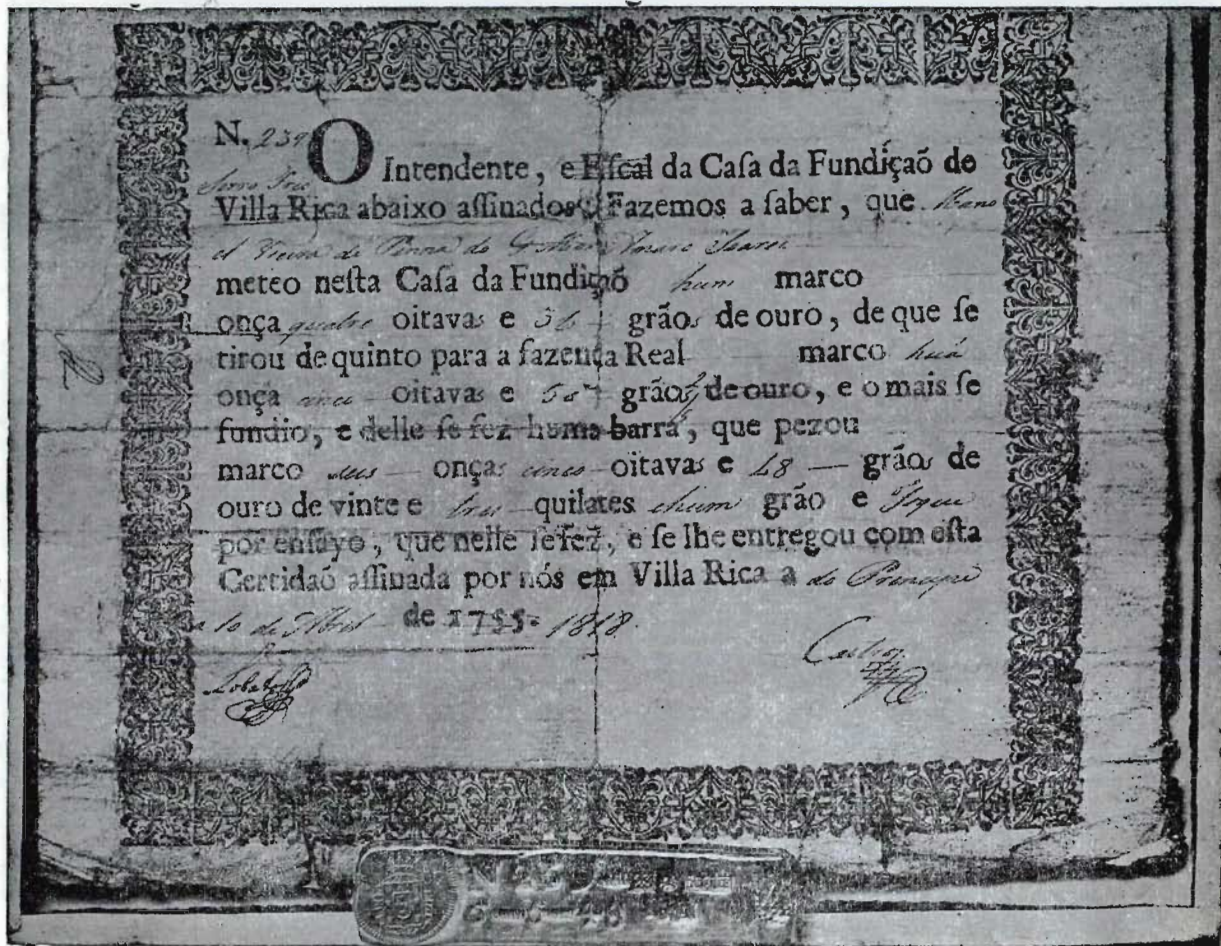 N. 239
Serro Frio
O Intendente, e Fiscal da Casa da Fundiçaõ de
Villa Rica abaixo aſſinados: Fazemos a ſaber, que Mano
el Vieira de
meteo neſta Caſa da Fundiçaõ hum marco
onça quatro oitavas e 36 grãos de ouro, de que ſe
tirou de quinto para a fazenda Real marco huã
onça cinco oitavas e grãos de ouro, e o mais ſe
fundio, e delle ſe fez huma barra, que pezou
marco seis onças cinco oitavas e 48 grãos de
ouro de vinte e tres quilates e hum grão e
por enſayo, que nelle ſe fez, e ſe lhe entregou com eſta
Certidaõ aſſinada por nós em Villa Rica a do Principe
a 10 de Abril de 1755. 1818.
Lobato